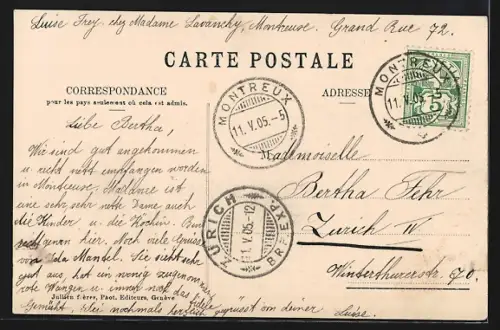 Luise Frey chez Madame Lavanchy, Montreuse. Grand Rue 72.
CARTE POSTALE
CORRESPONDANCE
pour les pays seulement où cela est admis.
ADRESSE
MONTREUX
11.V.05.-5
MONTREUX
11.V.05.-5
5
Liebe Bertha,
Wir sind gut angekommen
u. recht nett empfangen worden
in Montreuse. Madame ist
eine sehr sehr nette Dame auch
die Kinder u. die Köchin. Bin
gern hier. Noch viele Grüsse
von Ida Mantel. Sie sieht sehr
gut aus, hat ein wenig zugenommen
rote Wangen u. immer noch das
Gemüt. Sei nochmals herzlich gegrüsst von deiner
Luise.
Mademoiselle
Bertha Fehr
Zürich IV
Winterthurerstr. 70.
ZÜRICH
11.V.05.-12
BRF. EXP.
Jullien frères, Phot. Editeurs, Genève